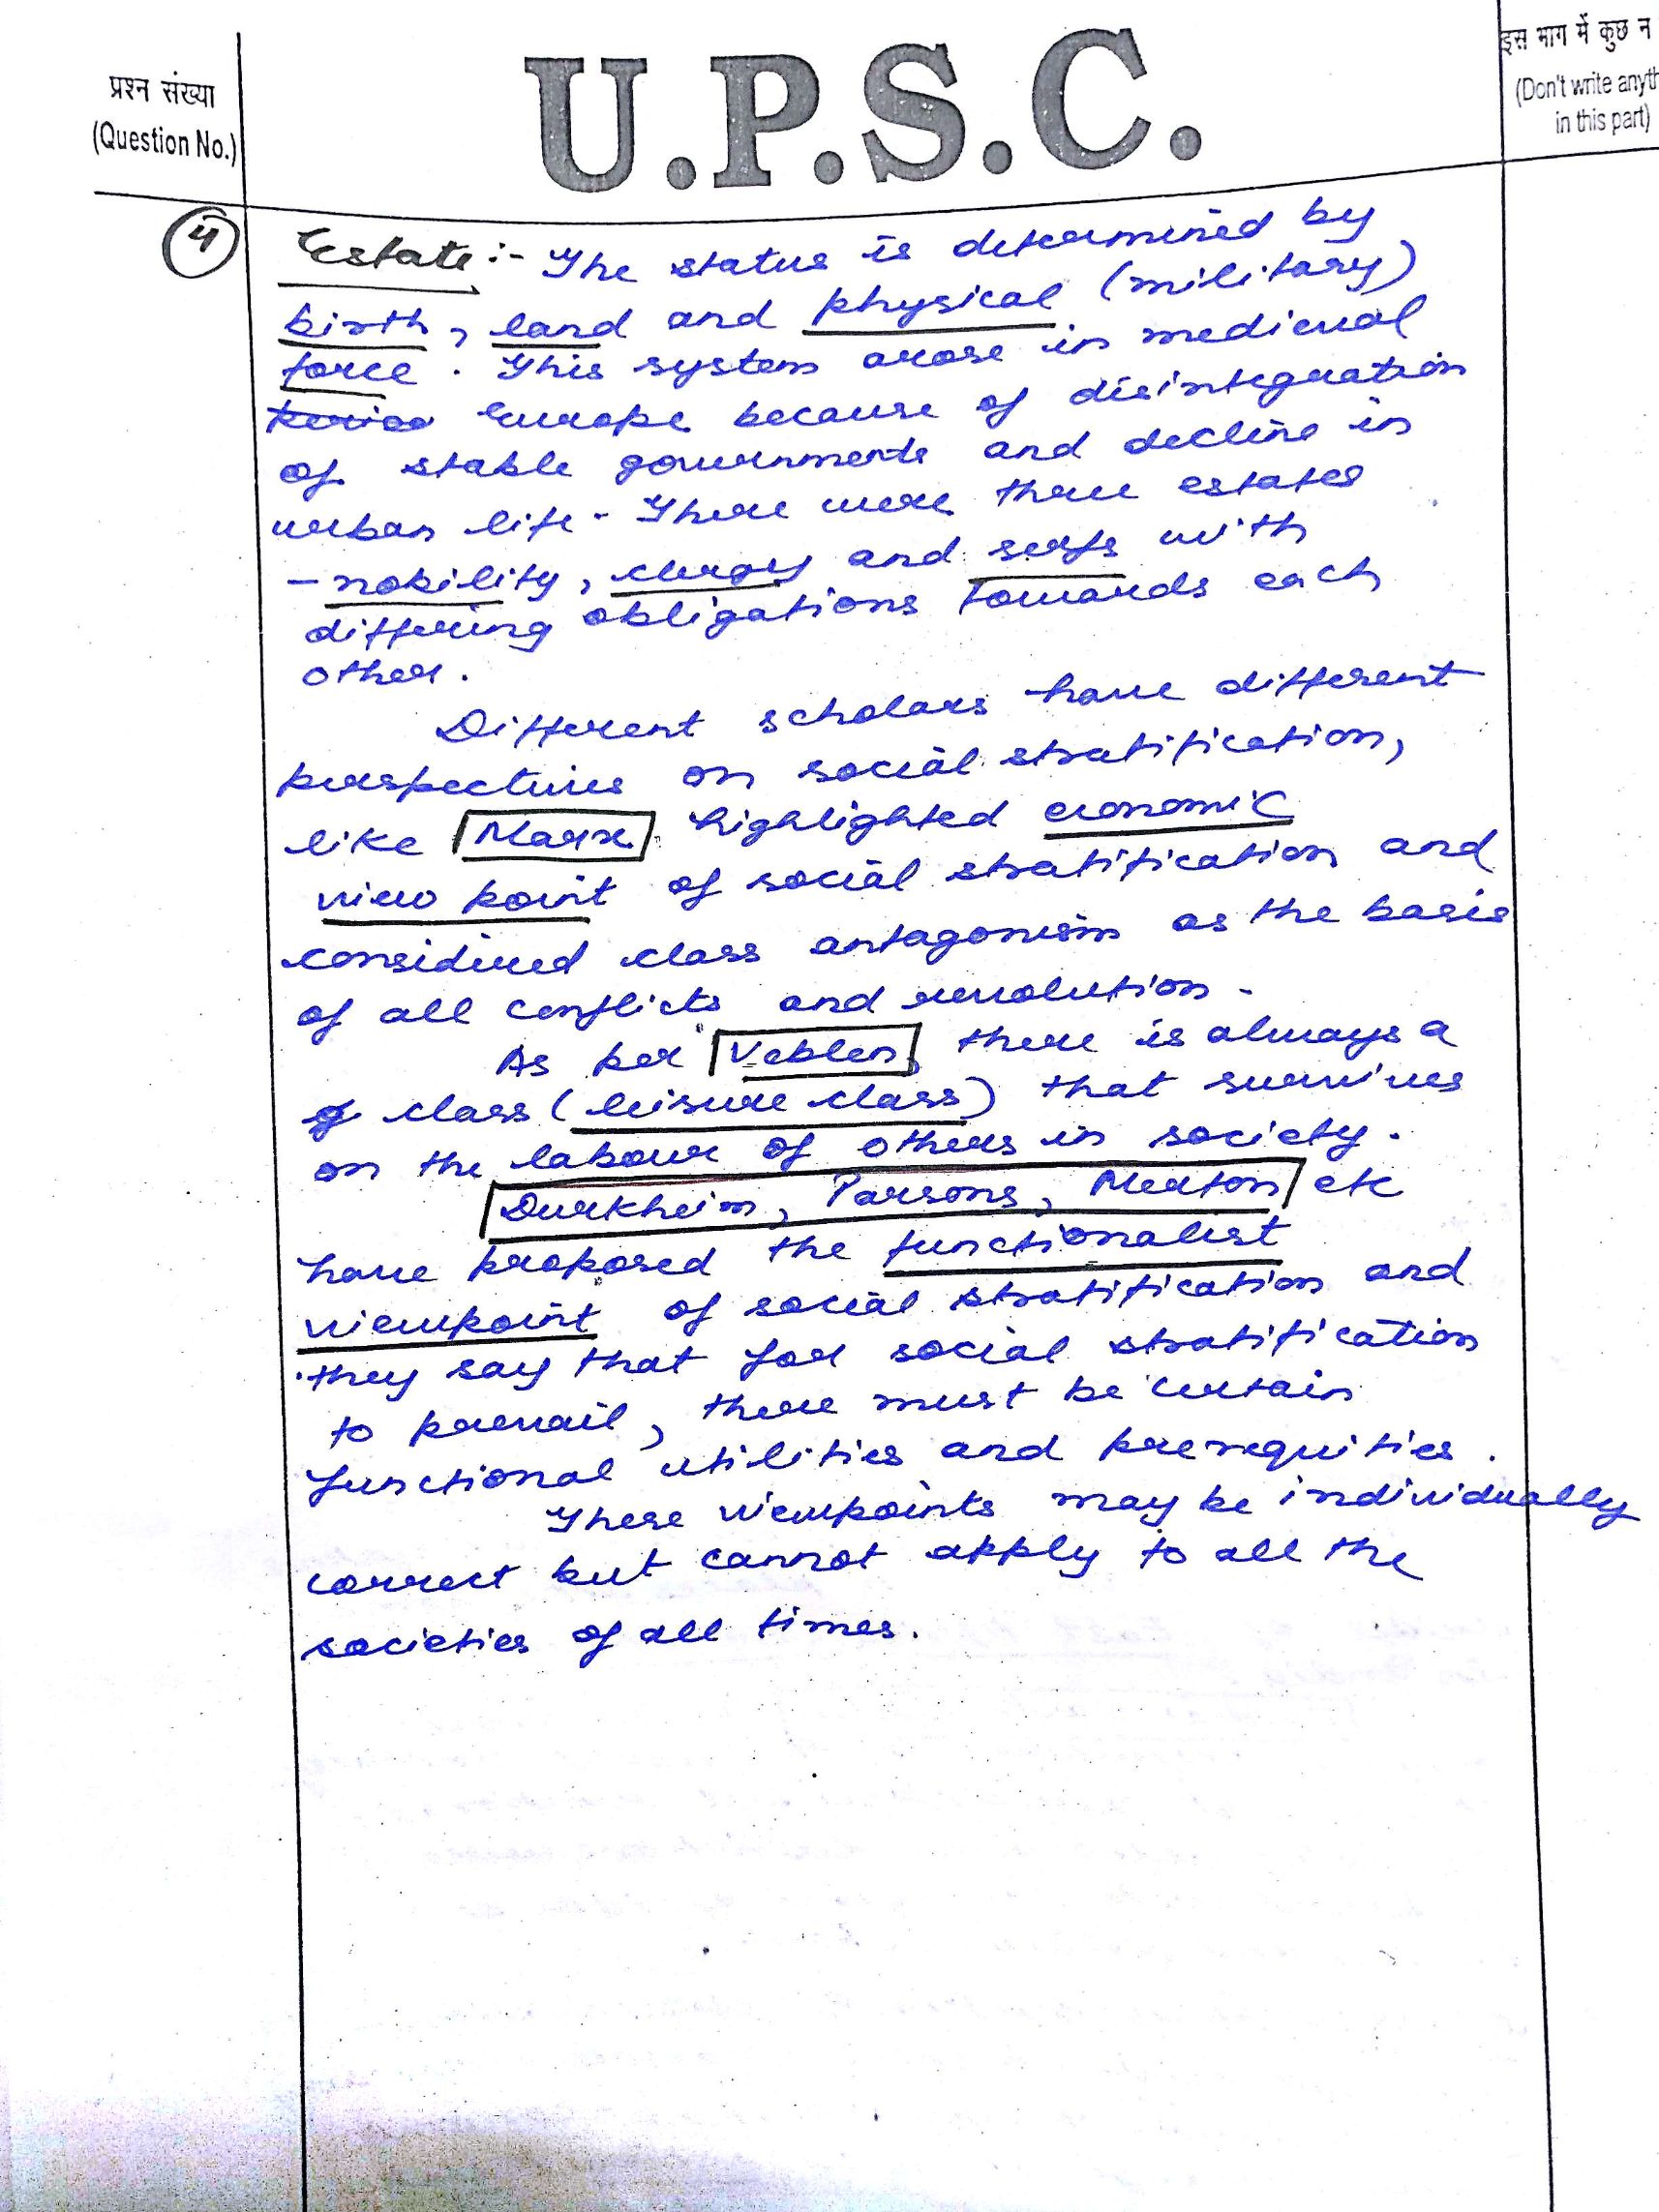 प्रश्न संख्या
(Question No.)
U.P.S.C.
इस भाग में कुछ न
(Don't write anyth
in this part)
4
Estate :- The status is determined by
birth, land and physical (military)
force. This system arose in medieval
Europe because of disintegration
of stable governments and decline in
urban life. There were three estates
- nobility, clergy and serfs with
differing obligations towards each
other.
Different scholars have different
perspectives on social stratification,
like Marx highlighted economic
view point of social stratification and
considered class antagonism as the basis
of all conflicts and revolution.
As per Veblen, there is always a
class (leisure class) that survives
on the labour of others in society.
Durkheim, Parsons, Merton etc
have proposed the functionalist
viewpoint of social stratification and
they say that for social stratification
to prevail, there must be certain
functional utilities and prerequities.
These viewpoints may be individually
correct but cannot apply to all the
societies of all times.